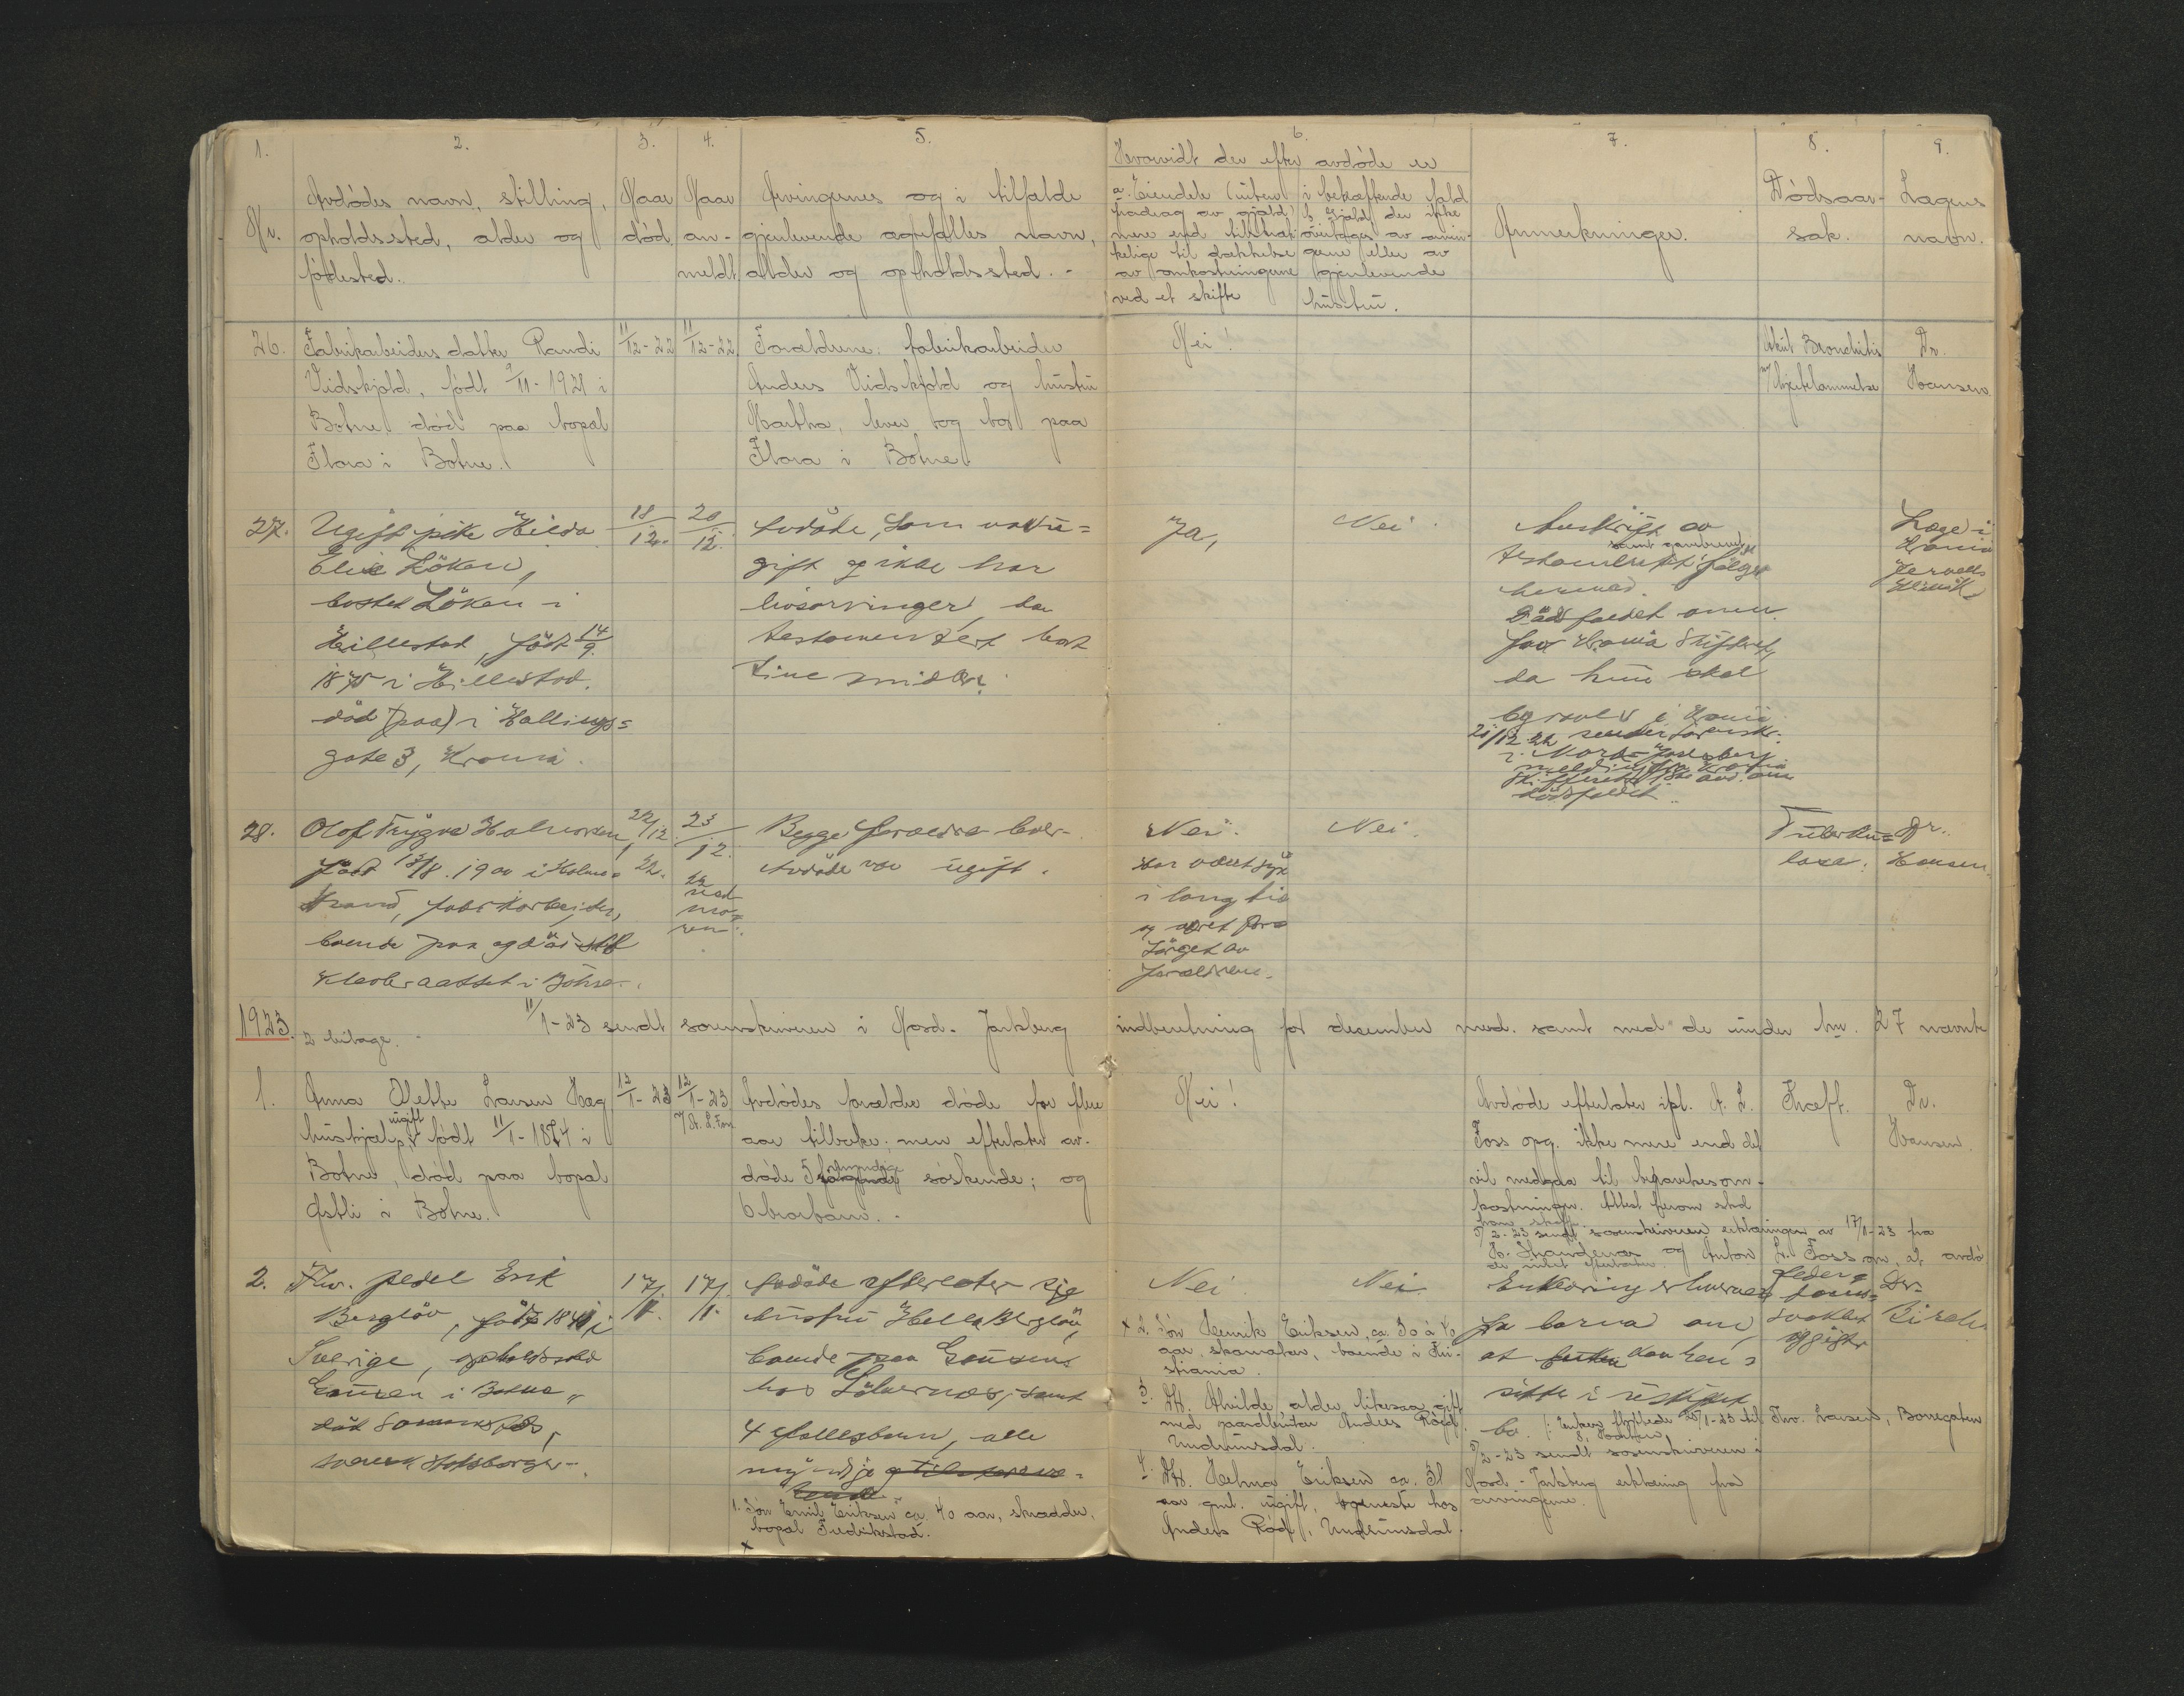 1. 2. 3. 4. 5. 6. 7. 8. 9.
Nr.
Avdödes navn, stilling,
opholdssted, alder og
födested.
Naar
död.
Naar
an-
meldt.
Arvingernes og i tilfælde
gjenlevende ægtefælles navn,
alder og opholdssted.
Hvorvidt der efter avdöde er
a. Eiendele (uten
fradrag av gjæld)
mere end tilstræk-
kelige til dækkelse
av omkostningerne
ved et skifte
i bekræftende fald
b. Gjæld der ikke
overtages av arvin-
gerne eller av
gjenlevende
hustru.
Anmerkninger.
Dödsaar-
sak.
Lægens
navn.
26.
Fabrikarbeiders datter Randi
Vidskjold, födt 9/11-1921 i
Botne, död paa bopæl
Flora i Botne.
11/12-22
11/12-22
Forældrene: fabrikarbeider
Anders Vidskjold og hustru
Martha, lever og bor paa
Flora i Botne.
Nei!
Akut Bronchitis
m/ Hjertelammelse
Dr.
Hansen
27.
Ugift pike Hilda
Elise Löken,
bosted Löken i
Hillestad, födt 14/9
1875 i Hillestad.
död (paa) i Hallings=
gate 3, Krania.
18/12.
20/12.
Avdöde, som var u=
gift og ikke har
livsarvinger, har
testamentert bort
sine midler.
Ja,
Nei.
Avskrift av
samt gavebrevet
testamentet fölger
herved.
Dödsfaldet anm.
for Krania Skifteret,
da hun skal
begraves i Krania
21/12 22 sendt sorenskr.
i Nord-Jarlsberg
melding fra Krania
skifteret
dödsfaldet.
Læge i
Krania
Jervells
Klinik
28.
Olof Trygve Halvorsen,
födt 13/8 1900 i Holme=
strand, fabrikarbeider,
boende paa og död sted
Kleverаasset i Botne.
22/12.
22.
23/12.
Begge forældre lever.
Avdöde var ugift.
Nei.
Har været syk
i lang tid
og været for=
sörget av
forældrene.
Nei.
Tuberku=
lose.
Dr.
Hansen.
1923.
2 bilage.
11/1-23 sendt sorenskriveren i Nord-Jarlsberg indberetning for desember med. samt med de under lnr. 27 nævnte
1.
Anna Olette Larsen Hæg
ugift
hushjelp, födt 11/1-1874 i
Botne, död paa bopæl
Østli i Botne.
12/1-23
12/1-23
Avdödes forældre döde for flere
aar tilbake; men efterlater av-
myndige
döde 5 söskende; og
6 brorbarn.
Nei!
Avdöde efterlater ifl. A. L.
Foss opg. ikke mere end det
vil medgaa til begravelsesom-
kostninger. Attest herom skal
frem skaff.
5/2-23 sendt sorenskriveren erklæringen av 17/1-23 fra
H. Strandenæs og Anton L. Foss om, at avdö
de intet efterlater.
Kræft.
Dr.
Hansen
2.
Fhv. pedel Erik
Berglöv, födt 1840 i
Sverige, opholdssted
Gausen i Botne,
död sammesteds,
svensk statsborger.
17/1.
17/1.
Avdöde efterlater sig
hustru Hella Berglöv,
boende paa Gausen
hos Sölvernæs, samt
4 fællesbarn, alle
myndige
1. Sön Emil Eriksen ca. 40 aar, skrædder,
bopæl Fredrikstad.
x
Nei
Nei
x 2. Sön Henrik Eriksen, ca. 30 à 40
aar, skomaker, boende i Kri-
stiania.
3. Dt. Alvilde, alder likesaa, gift
med gaardbruker Anders Röed,
Undrumsdal.
4. Dt. Helma Eriksen ca. 31
aar gml. ugift, tjeneste hos
Anders Röed, Undrumsdal.
Erklæring erhverves
fra barna om,
at enken kan hen=
sitte i uskiftet
bo. (: Enken flyttede 20/1-23 til Fhv. Larsens, Borregaten
5/2-23 sendt sorenskriveren i
Nord-Jarlsberg erklæring fra
arvingerne.
svakhet
Dr.
Birch.